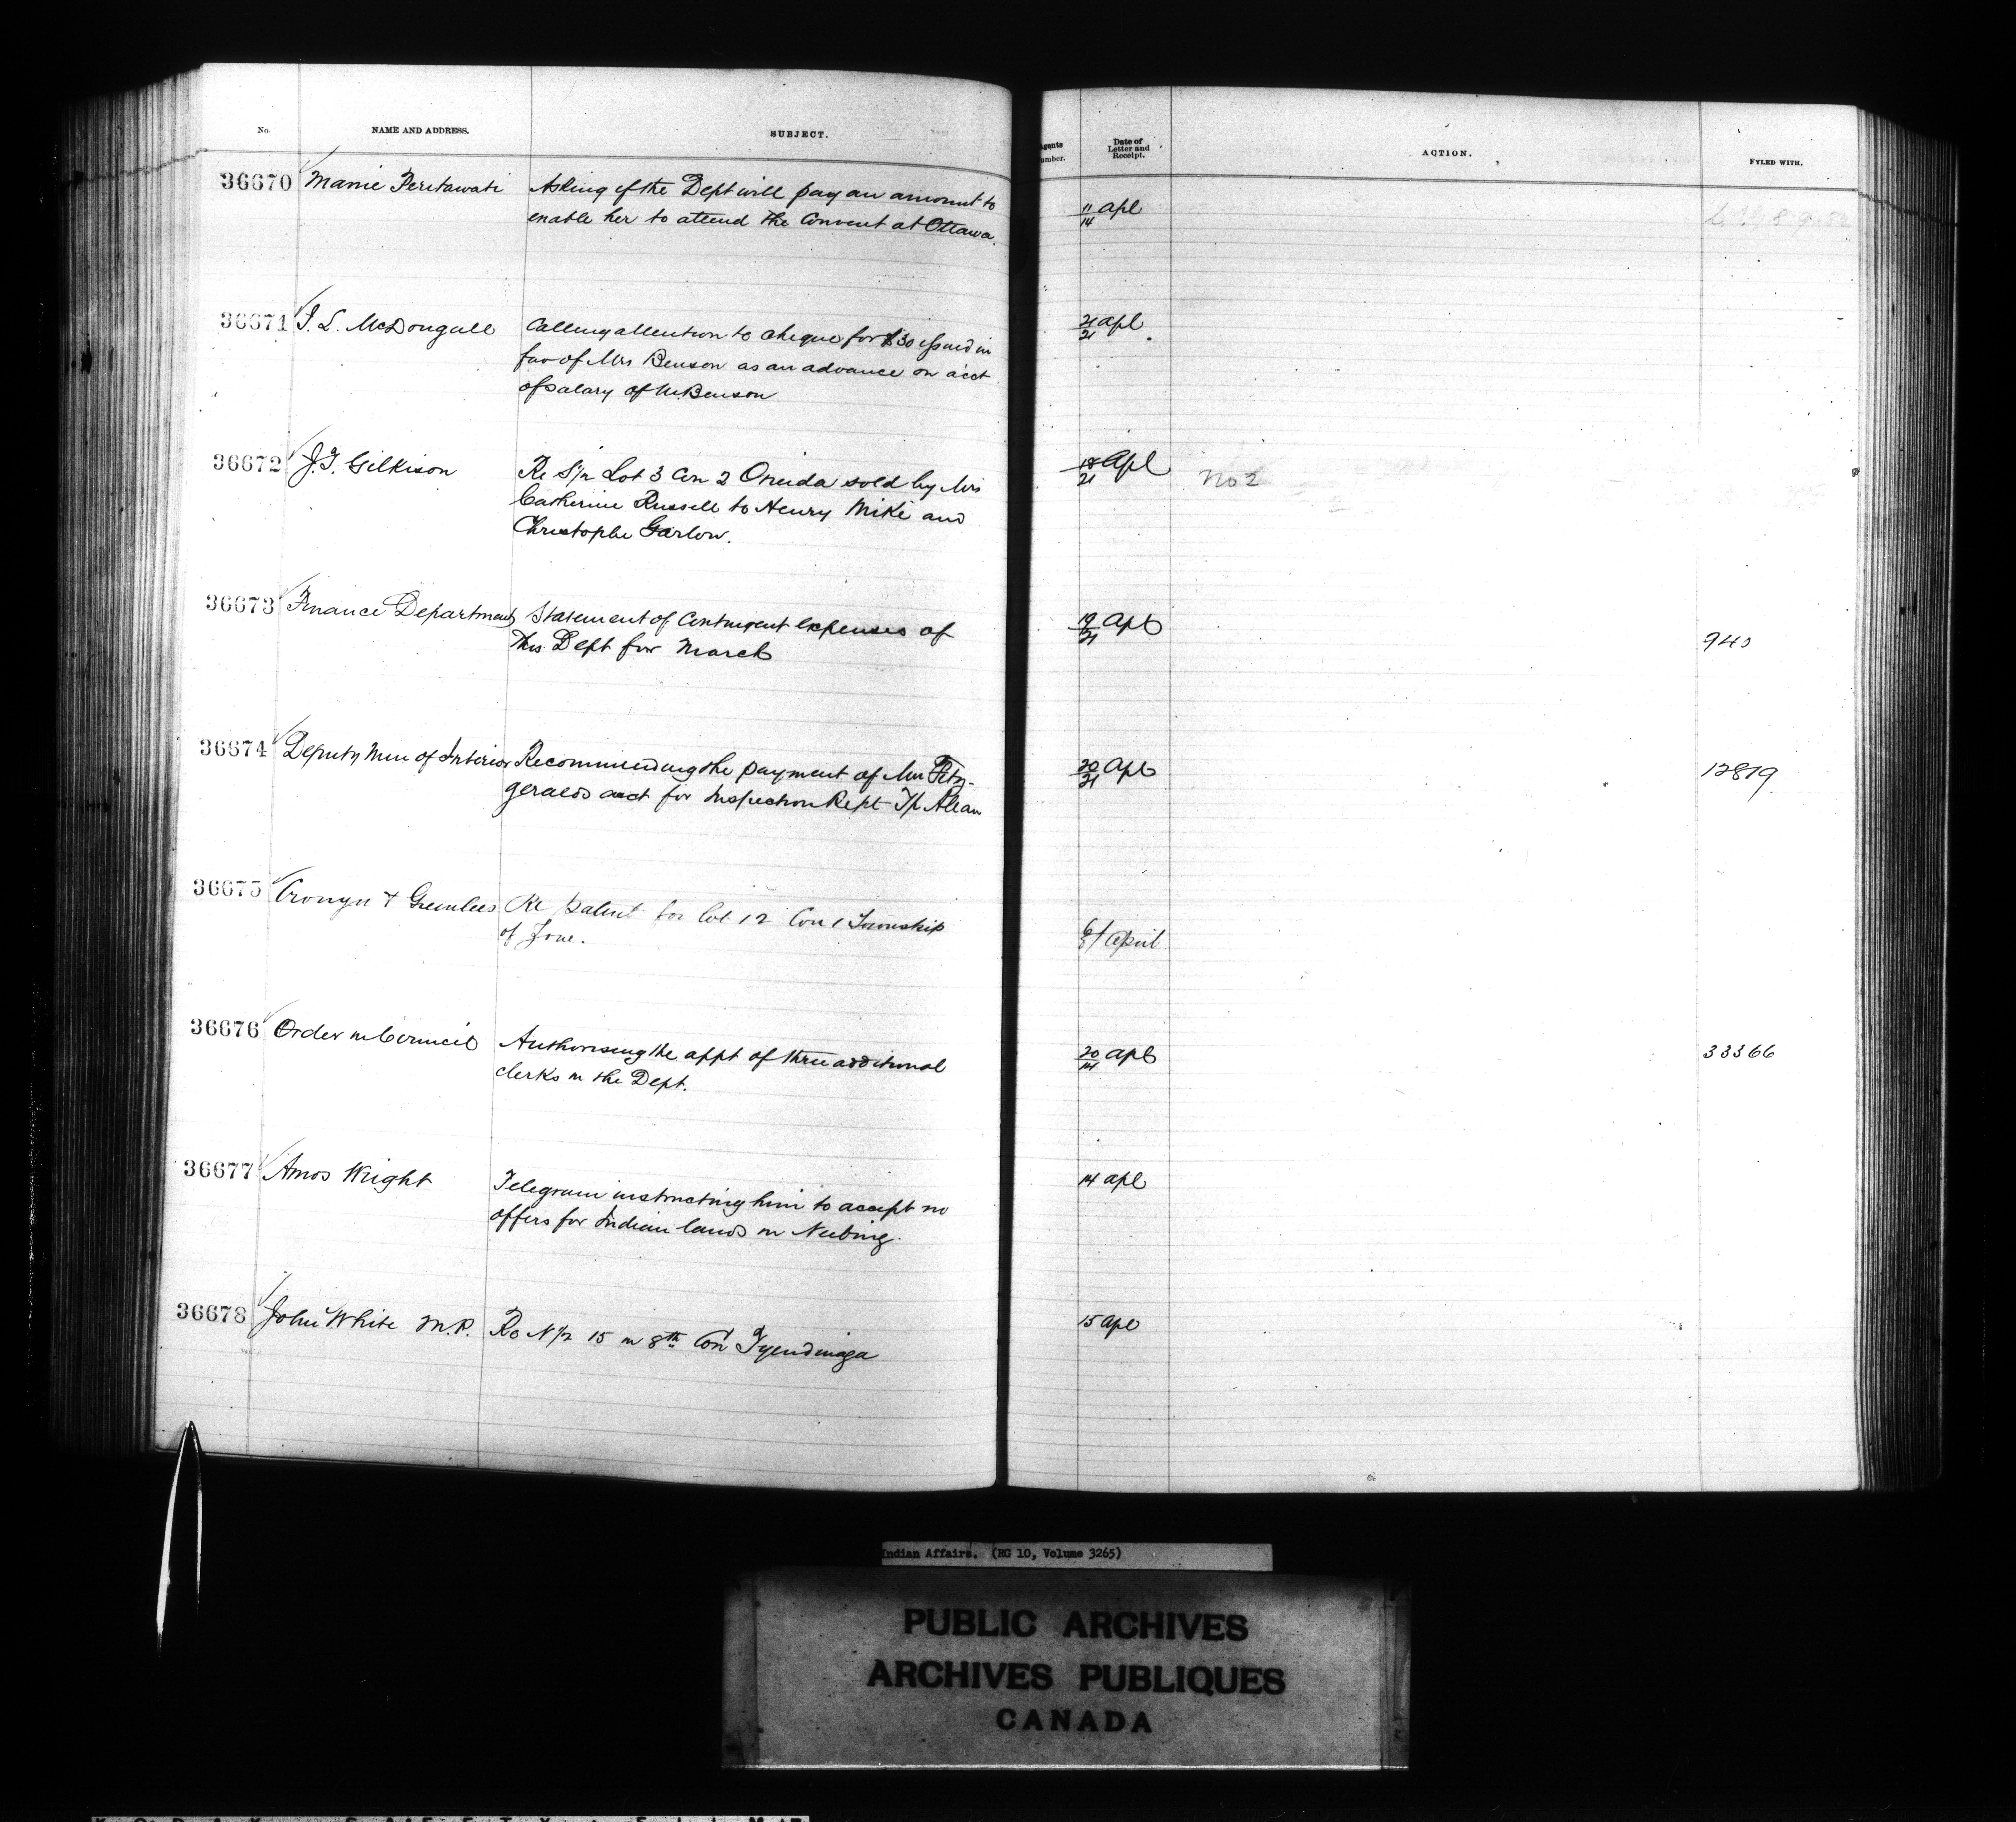 No.
NAME AND ADDRESS.
SUBJECT.
Agents Number.
Date of Letter and Receipt.
ACTION.
FYLED WITH.
36670 Marie Asking if the Dept will pay an amount to
enable her to attend the Convent at Ottawa.
11/14 Apl
36671 J. L. McDougall Calling attention to cheque for $30 issued in
fav of Mrs Benson as an advance on acct
of salary of Benson
21/21 Apl
36672 J.T. Gilkison Re S½ Lot 3 Con 2 Oneida sold by Mrs
Catherine Russell to Henry Mike and
Christophe Garlow.
18/21 Apl
No 2
36673 Finance Department Statement of Contingent expenses of
this Dept for March
19/21 Apl
940
36674 Deputy Min of Interior Recommending the payment of Mr Fitz-
geralds acct for Inspection Rept Tp Allan
20/21 Apl
12819
36675 Cronyn & Greenlees Re patent for lot 12 Con 1 Township
of Zone.
6/8 April
36676 Order in Council Authorising the appt of three additional
clerks in the Dept.
20/14 Apl
33366
36677 Amos Wright Telegram instructing him to accept no
offers for Indian lands in Neebing.
14 Apl
36678 John White M.P. Re N½ 15 in 8th Con Tyendinaga
15 Apl
Indian Affairs. (RG 10, Volume 3265)
PUBLIC ARCHIVES
ARCHIVES PUBLIQUES
CANADA